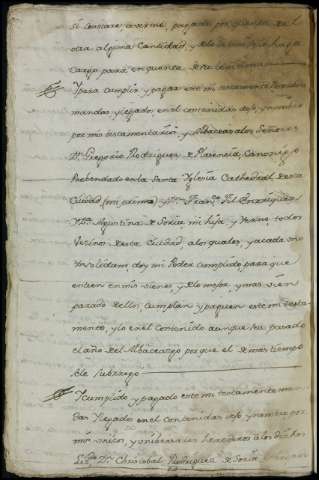 si constare, averme pagado por
otra alguna Cantidad, y
Cargo para en quenta
Ypara cumplir y pagar este mi testamento
mandas, y legados en el contenidas dejo, y nombro
por mis testamentarios, y Albaceas a los Señores
Dn. Gregorio Rodriguez de Plasencia, Canonigo
Prebendado en la Santa Yglesia Cathedral de esta
Ciudad (mi primo) y Dn. Franco. Gil Rodriguez
y Da. Agustina de Soria mi hija, y Yerno, todos
Vezinos de esta Ciudad, alos quales, y acada uno
Ynsolidum, doy mi Poder cumplido, para que
entren en mis vienes, y de lo mejor, y mas vien
parado de ellos, cumplan y paguen este mi testa-
mento, y lo en el contenido aunque sea pasado
el año del Albaceazgo por que el demas tiempo
se le subrrogo
Y cumplido y pagado este mi testamento man-
das y legados en el contenidas dejo y nombro por
mis unicos, y universales herederos a los dichos
Dn. Christobal Rodriguez de Soria